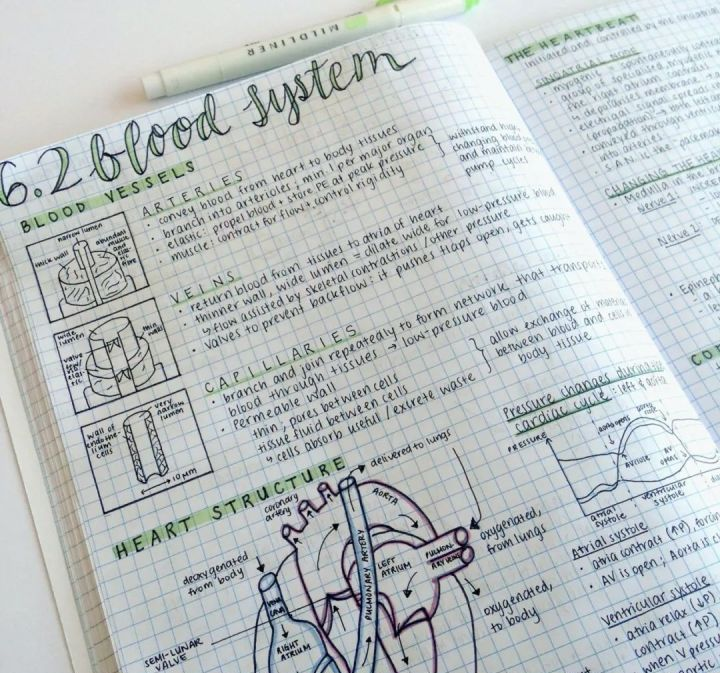 MILDLINER
6.2 blood system
BLOOD VESSELS
narrow lumen
thick wall
abundant
muscle
and
elastic
fibre
ARTERIES
• convey blood from heart to body tissues
• branch into arterioles; min 1 per major organ
• elastic: propel blood + store PE at peak pressure
• muscle: contract for flow + control rigidity
withstand high,
changing blood
and maintain
pump cycles
wide
lumen
thin
wall
valve
VEINS
• return blood from tissues to atria of heart
• thinner wall, wide lumen = dilate wide for low-pressure blood
↳ flow assisted by skeletal contractions / other pressure
• valves to prevent backflow: it pushes flaps open; gets caught
wall of
endothe-
lium
cells
very
narrow
lumen
10 µm
CAPILLARIES
• branch and join repeatedly to form network that transports
blood through tissues → low-pressure blood
• permeable wall
thin; pores between cells
tissue fluid between cells
↳ cells absorb useful / excrete waste
allow exchange of material
between blood and cells in
body tissue
HEART STRUCTURE
coronary
artery
delivered to lungs
AORTA
PULMONARY ARTERY
LEFT
ATRIUM
PULMON-
ARY VEINS
oxygenated,
from lungs
oxygenated,
to body
deoxygenated
from body
VENA
CAVA
RIGHT
ATRIUM
SEMI-LUNAR
VALVE
THE HEARTBEAT
initiated and controlled by the sinoatrial
SINOATRIAL NODE
• myogenic: spontaneously
• group of specialized
the right atrium
↳ depolarises membrane
• electrical signal
(propagation)
• conveyed through
into arteries
• S.A.N. is the "pacemaker
CHANGING THE HEA
• Medulla in the br
Nerve 1:
Nerve 2:
• Epineph
Pressure changes during
cardiac cycle: left & aorta
PRESSURE
aorta opens
aorta
close
AV close
AV
opens
atrial
systole
ventricular
systole
Atrial systole
• atria contract (↑P), forcin
• AV is open; Aorta is cl
Ventricular systole
• atria relax (↓P)
contract (↑P)
when V press